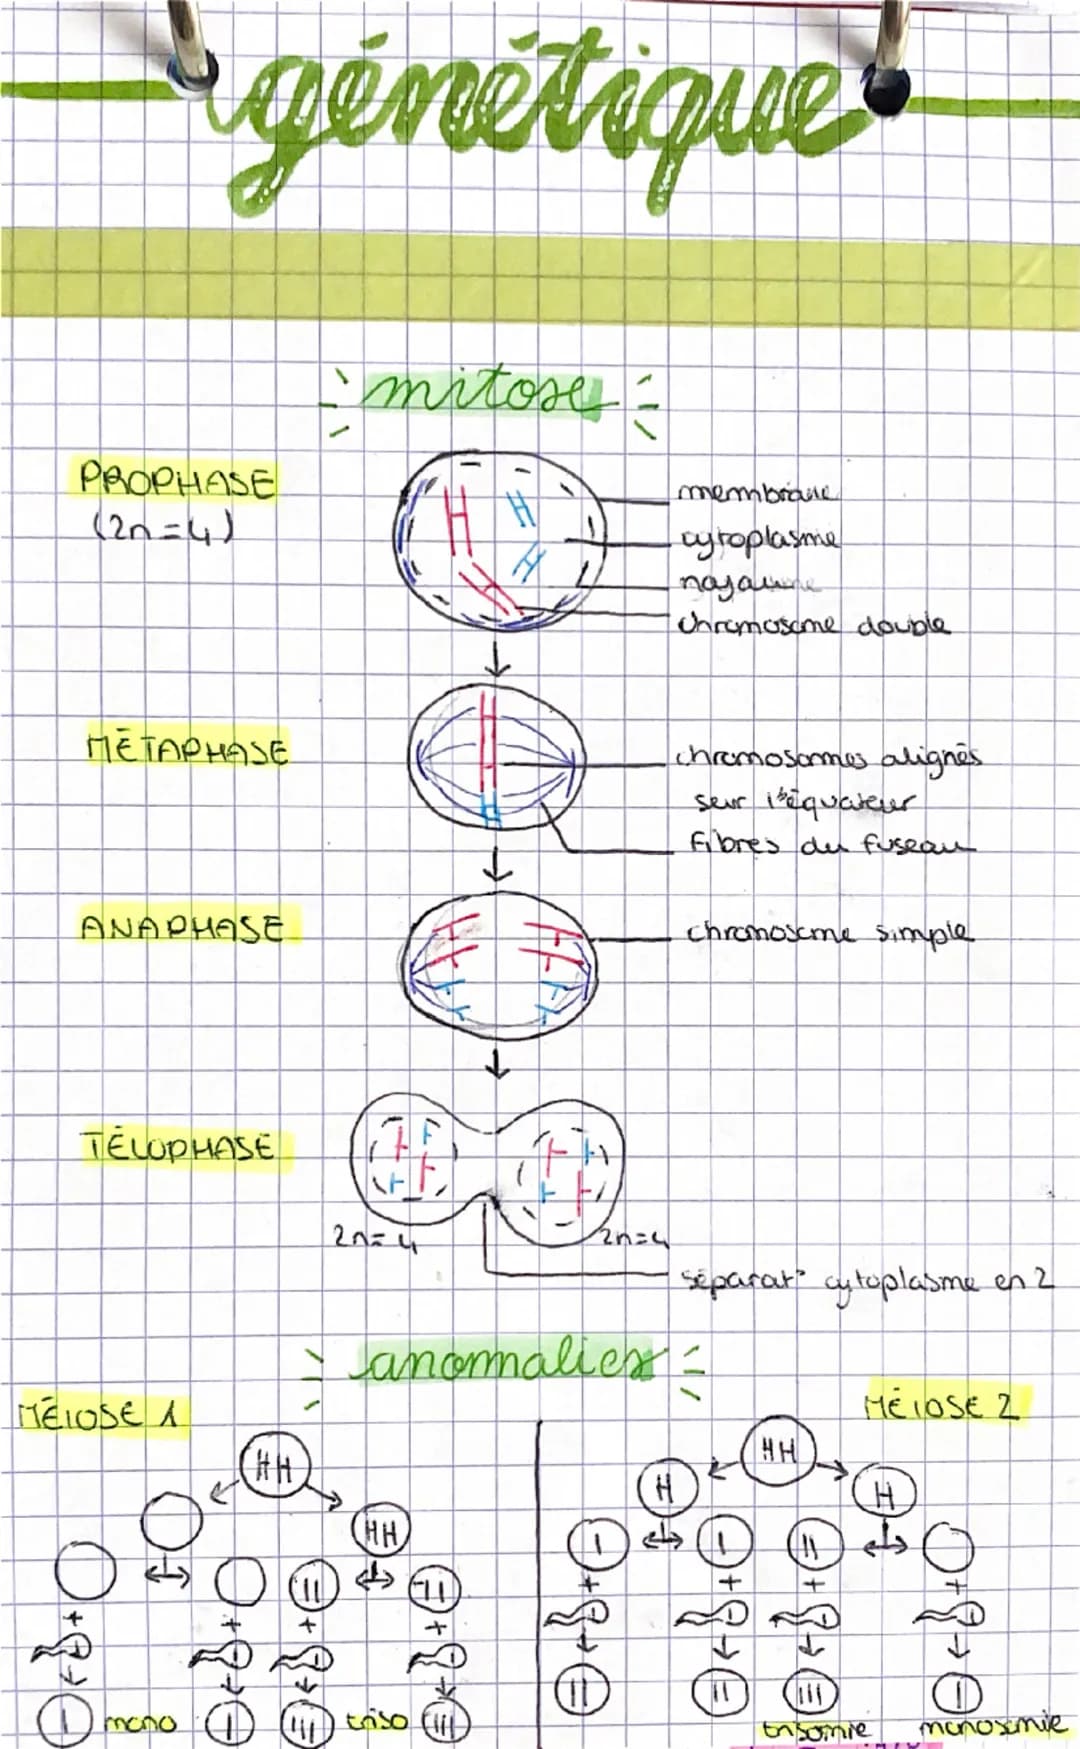 génétique
mitose
PROPHASE
(2n=4)
membrane
cytoplasme
chromosome double
MÉTAPHASE
chromosomes alignés
sur l'équateur
fibres du fuseau
ANAPHASE
chromosome simple
TÉLOPHASE
2n=4
2n=4
séparat° cytoplasme en 2
anomalies
MÉIOSE 1
MÉIOSE 2
mono
triso
trisomie
monosomie